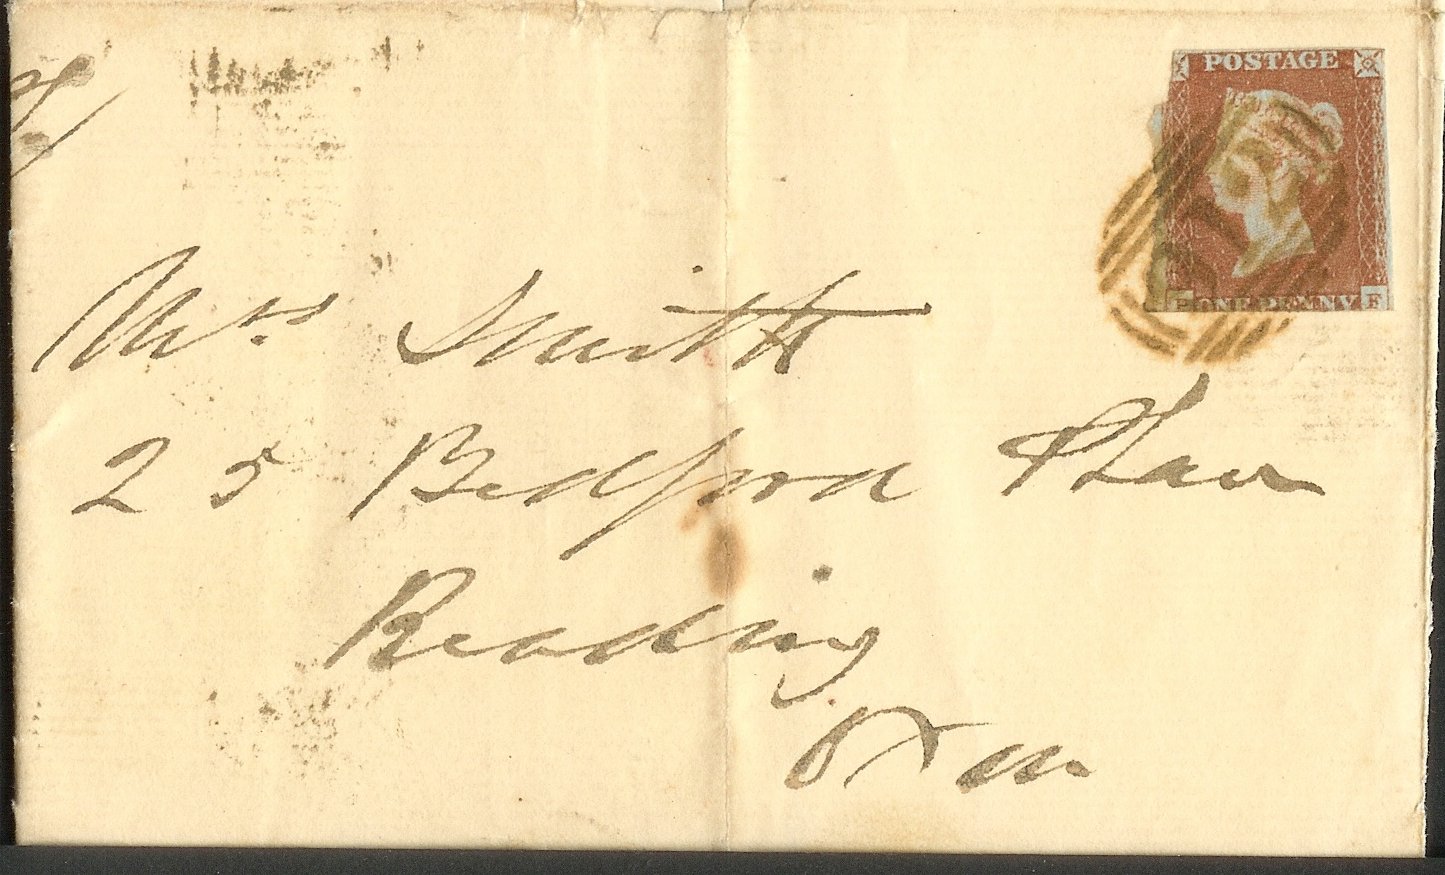 POSTAGE
ONE PENNY F
Mrs Smith
25 Bedford Place
Reading
Oxon